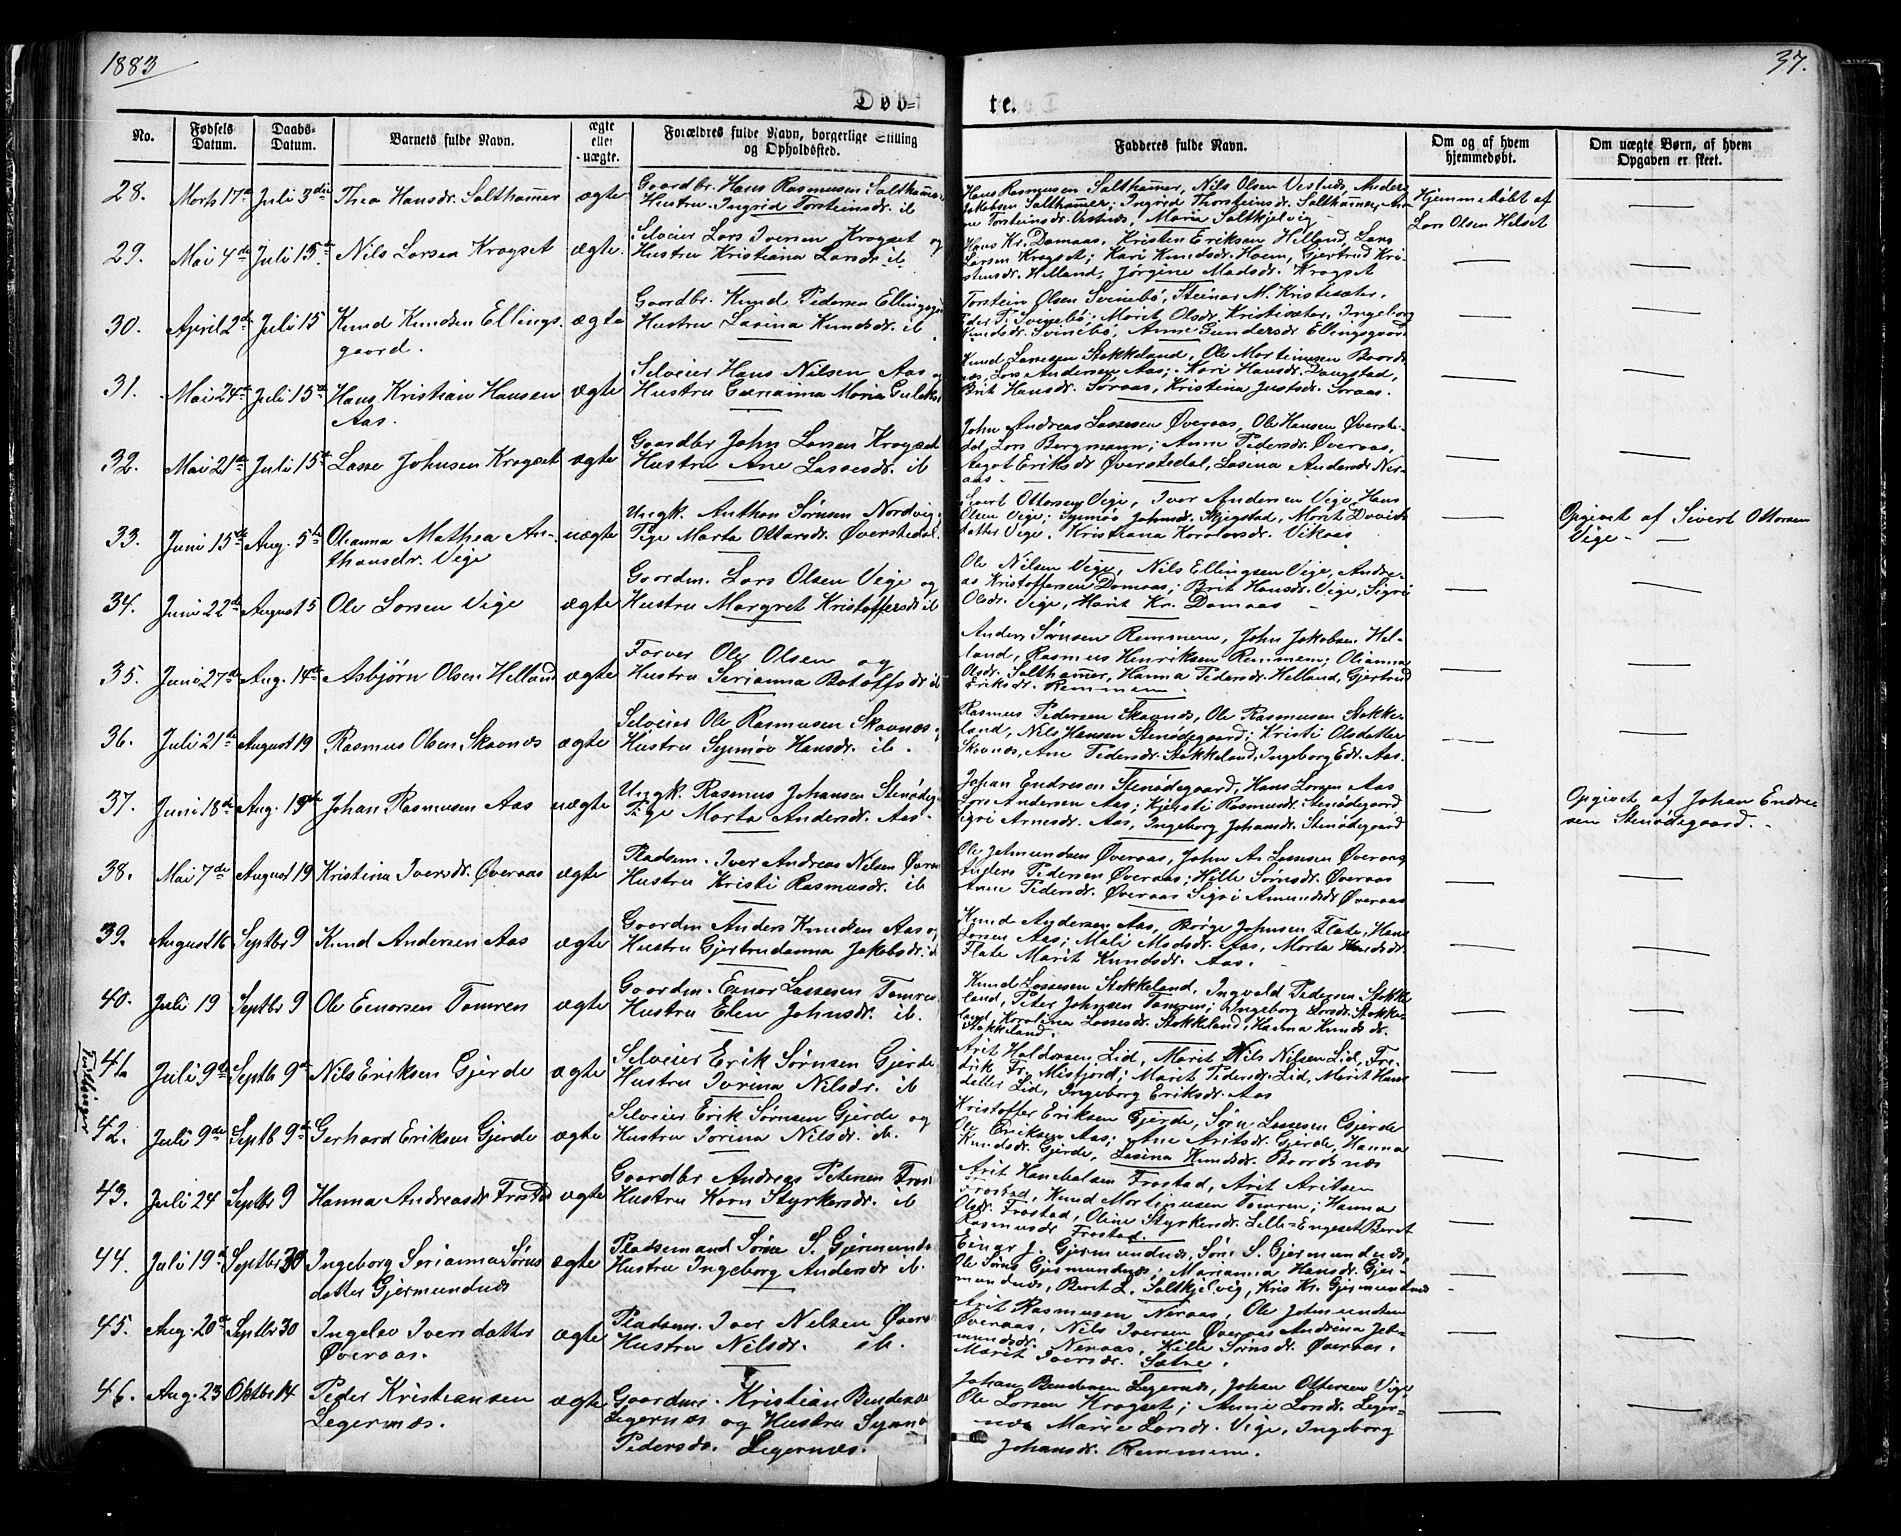 1883
37.
Døb-
te.
No.
Fødsels Datum.
Daabs-Datum.
Barnets fulde Navn.
ægte eller uægte.
Forældres fulde Navn, borgerlige Stilling og Opholdssted.
Fadderes fulde Navn.
Om og af hvem hjemmedøbt.
Om uægte Børn, af hvem Opgaven er skeet.
28. Marts 17de Juli 3die Thea Hansdr. Salthammer ægte Gaardbr. Hans Rasmusen Salthamme
Hustru Ingrid Torsteinsdr. ib
Hans Rasmusen Salthammer, Nils Olsen Vestnæs, Anders
Jakobsen Salthammer; Ingrid Thorsteinsdr. Salthammer, An-
ne Torsteinsdr. Vestnæs, Maria Saltkjelvig
Hjemmedøbt af
Lars Olsen Helset
29. Mai 4de Juli 15de Nils Larsen Kragset ægte. Selveier Lars Iversen Kragset og
Hustru Kristiana Larsdr. ib.
Hans Kr. Damaas, Kristen Eriksen Helland, Lars
Larsen Kragset; Kari Knudsdr. Hoem, Gjertrud Kri-
stensdr. Helland, Jørgine Madsdr. Kragset
30. April 2de Juli 15 Knud Knudsen Ellings-
gaard.
ægte Gaardbr. Knud Pedersen Ellingsg
Hustru Lasina Knudsdr. ib
Torstein Olsen Svinebø, Steinar M. Kristisæter,
Peder T. Svinebø; Marit Olsdr. Kristisæter, Ingeborg
Knudsdr. Svinebø, Anne Gundersdr Ellingsgaard
31. Mai 24de Juli 15de Hans Kristian Hansen
Aas.
ægte Selveier Hans Nilsen Aas og
Hustru Gurianna Maria
Knud Lassesen Stokkeland, Ole Mortinusen Baards-
næs, Lars Andersen Aas; Kari Hansdr. Daugstad,
Brit Hansdr. Soraas, Kristina Justsdr. Soraas.
32. Mai 21de Juli 15de Lasse Johnsen Kragset ægte Gaardbr John Larsen Kragset
Hustru Ane Lassesdr. ib
John Andreas Lassesen Øveraas, Ole Hansen Øverste-
dal, Lars Bergmann; Anne Pedersdr. Øveraas,
Aagot Eriksdr Øverstedal, Lasina Andersdr Ner-
aas
33. Juni 15de Aug. 5te Olianna Mathea An-
thonsdr. Vige
uægte Ungk. Anthon Sørnsen Nordvig
Pige Marta Ottarsdr. Øverstedal.
Sivert Ottarsen Vige, Iver Andersen Vige, Hans
Olsen Vige; Synnøv Johnsdr. Skjegstad, Marit Davids-
datter Vige, Kristiana Karolusdr. Vikaas
Opgivet af Sivert Ottarsen
Vige
34. Juni 22de August 5 Ole Larsen Vige ægte Gaardm. Lars Olsen Vige og
Hustru Margret Kristoffersdr ib
Ole Nilsen Vige, Nils Ellingsen Vige, Andre-
as Kristoffersen Damaas; Brit Hansdr. Vige, Sigri
Olsdr. Vige, Marit Kr. Damaas
35. Juni 27de Aug. 14de Asbjørn Olsen Helland ægte Farver Ole Olsen og
Hustru Serianna Botolfsdr ib
Anders Sørnsen Remmem, John Jakobsen Hel-
land, Rasmus Henriksen Remmem; Olianna
Olsdr. Salthammer, Hanna Pedersdr. Helland, Gjertrud
Eriksdr. Remmem
36. Juli 21de August 19 Rasmus Olsen Skavnæs ægte Selveier Ole Rasmusen Skavnæs
Hustru Synnøv Hansdr. ib.
Rasmus Pedersen Skavnæs, Ole Rasmusen Stokke-
land, Nils Hansen Stenødegaard; Kristi Olsdatter
Skavnæs, Ane Pedersdr. Stokkeland, Ingeborg Edr. Aas.
37. Juni 18de Aug. 19de Johan Rasmusen Aas uægte Ungk. Rasmus Johansen Stenødeg
Pige Marta Andersdr. Aas.
Johan Endresen Stenødegaard, Hans Larsen Aas
Lars Andersen Aas; Kjersti Rasmusdr. Stenødegaard
Sigri Arnesdr. Aas, Ingeborg Johansdr. Stenødegaard
Opgivet af Johan Endre-
sen Stenødegaard.
38. Mai 7de August 19 Kristina Iversdr. Øveraas ægte Pladsm. Iver Andreas Nilsen Øvera
Hustru Kristi Rasmusdr. ib
Ole Jetmundsen Øveraas, John A. Lassesen Øveraas
Anders Pedersen Øveraas; Kille Sørnsdr. Øveraas
Anne Pedersdr. Øveraas Sigri Amundsdr Øveraas
39. August 16 Septbr 9 Knud Andersen Aas ægte Gaardm Anders Knudsen Aas og
Hustru Gjertrudanna Jakobsdr. ib
Knud Andersen Aas, Børge Johnsen Flate, Hans
Larsen Aas; Mali Madsdr. Aas, Marta Knudsdr.
Flate Marit Knudsdr. Aas.
40. Juli 19 Septbr 9 Ole Einarsen Tomren ægte Gaardm. Einar Lassesen Tomren
Hustru Elen Johnsdr. ib.
Knud Lassesen Stokkeland, Ingvald Pedersen Stokke-
land, Peter Johnsen Tomren; Ingeborg Larsdr. Stokke-
land, Karolina Lassesdr. Stokkeland, Hanna Knudsdr.
Stokkeland.
Tvillinger
41. Juli 9de Septb 9de Nils Eriksen Gjerde ægte Selveier Erik Sørnsen Gjerde
Hustru Iverina Nilsdr. ib
Arit Haldorsen Lid, Marit Nils Nilsen Lid, Fre-
drik Fr. Misfjord; Marit Pedersdr. Lid, Marit Hans-
datter Lid, Ingeborg Eriksdr. Aas
42. Juli 9de Septb 9de Gerhard Eriksen Gjerde ægte Selveier Erik Sørnsen Gjerde og
Hustru Iverina Nilsdr. ib.
Kristoffer Eriksen Gjerde, Sørn Lassesen Gjerde
Ole Eriksen Aas; Ane Aritsdr. Gjerde, Hanna
Knudsdr. Gjerde, Lasina Knudsdr. Baardsnæs
43. Juli 24 Septbr 9 Hanna Andreasdr Frostad ægte Gaardbr Andreas Petersen Fros
Hustru Karn Styrkersdr. ib
Arit Hansen Frostad, Arit Aritsen
Frostad, Knud Mortinusen Tomren; Hanna
Olsdr. Frostad, Oline Styrkersdr. Lille-Engeset Beret
Rasmusdr Frostad.
44. Juli 19de Septbr 30 Ingeborg Serianna Sørns
datter Gjermundnæs
ægte Pladsemand Sørn S. Gjermunds
Hustru Ingeborg Andersdr ib.
Einar J. Gjermundnæs, Sørn S. Gjermundnæs,
Ole Sørns Gjermundnæs; Marianna Hansdr. Gjer-
mundnæs, Berit L. Saltkjelvig, Kris Kr. Gjermundnæs
45. Aug. 20de Septbr 30 Ingelev Iversdatter
Øveraas.
ægte Pladsm. Iver Nilsen Øvera
Hustru Nilsdr. ib.
Arit Rasmusen Neraas, Ole Jetmundsen
Øveraas, Nils Iversen Øveraas Andrina Jet-
mundsdr. Neraas, Kille Sørnsdr. Øveraas.
Marit Iversdr. Sætre.
46. Aug. 23 Oktbr 14 Peder Kristiansen
Legernæs.
ægte Gaardm. Kristian Bendixse
Legernæs og Hustru Synnø
Pedersdr. Legernæs.
Johan Bendixen Legernæs, Johan Ottersen Vige
Ole Larsen Kragset; Anne Larsdr. Leger-
næs Marie Larsdr. Vige, Ingeborg
Johansdr. Remmem.